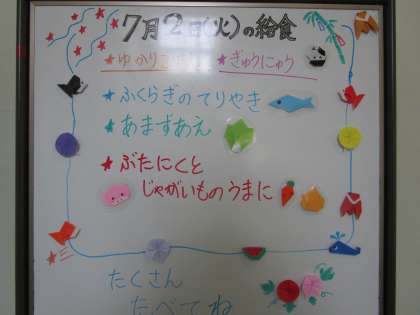 7月2日(火)の給食
★ゆかりごはん ★ぎゅうにゅう
★ふくらぎのてりやき
★あまずあえ
★ぶたにくと
じゃがいものうまに
たくさん
たべてね